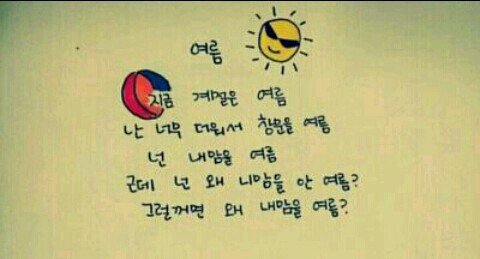 여름
지금 계절은 여름
난 너무 더워서 창문을 여름
넌 내맘을 여름
근데 넌 왜 니맘을 안 여름?
그럴꺼면 왜 내맘을 여름?